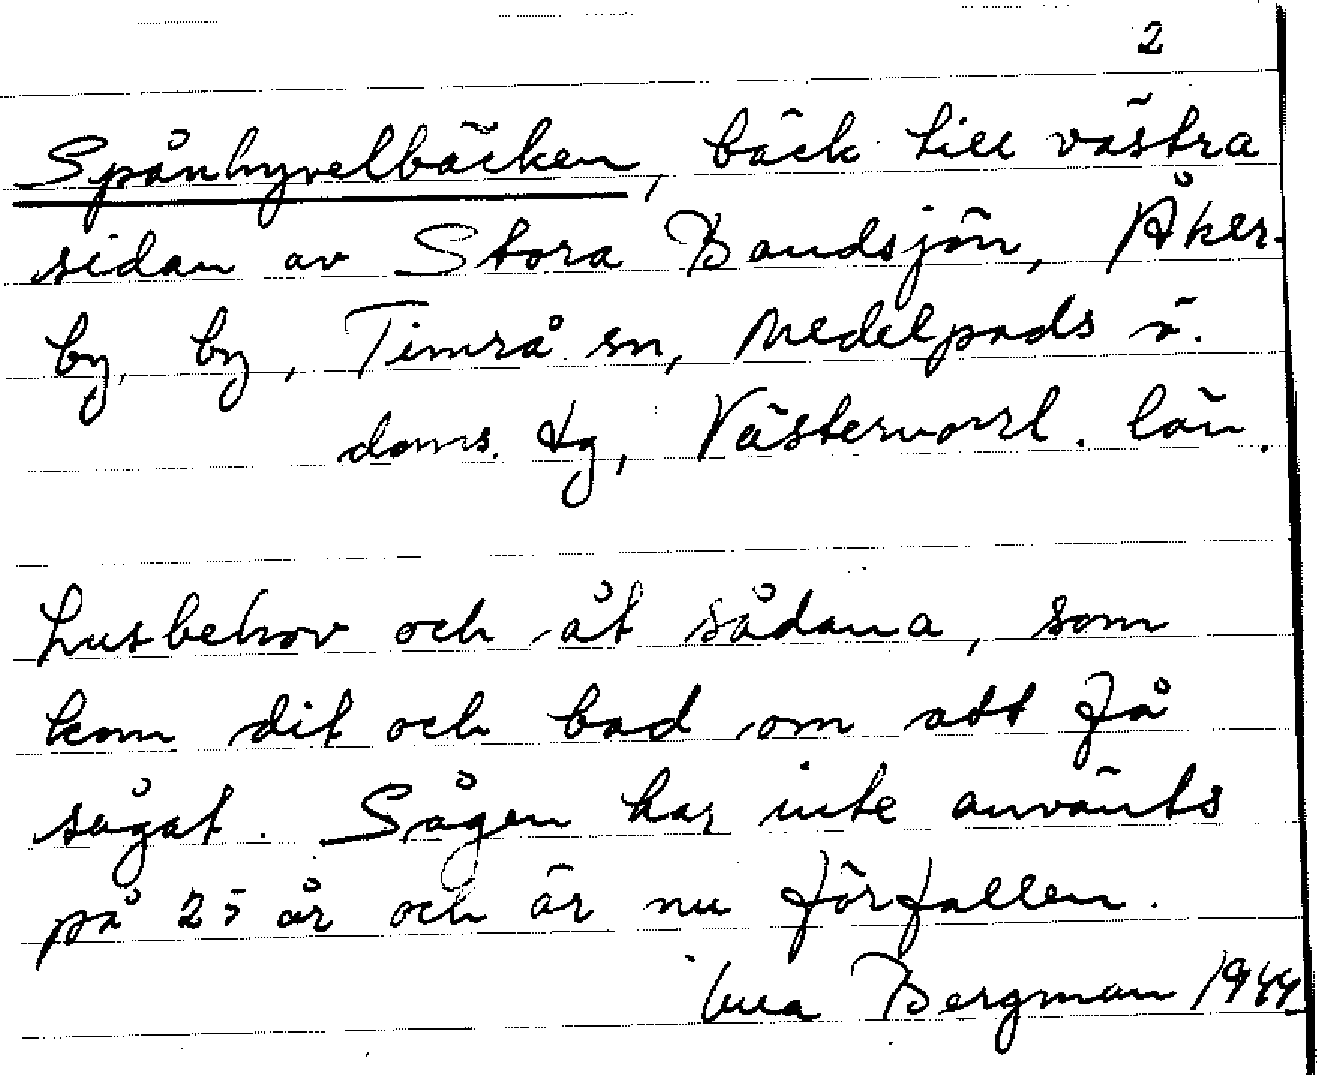 2
Spånhyvelbäcken, bäck till västra
sidan av Stora Bandsjön, Åker-
by, by, Timrå sn, Medelpads ö.
doms. tg, Västernorrl. län.
husbehov och åt sådana, som
kom dit och bad om att få
sågat. Sågen har inte använts
på 25 år och är nu förfallen.
Bergman 1944